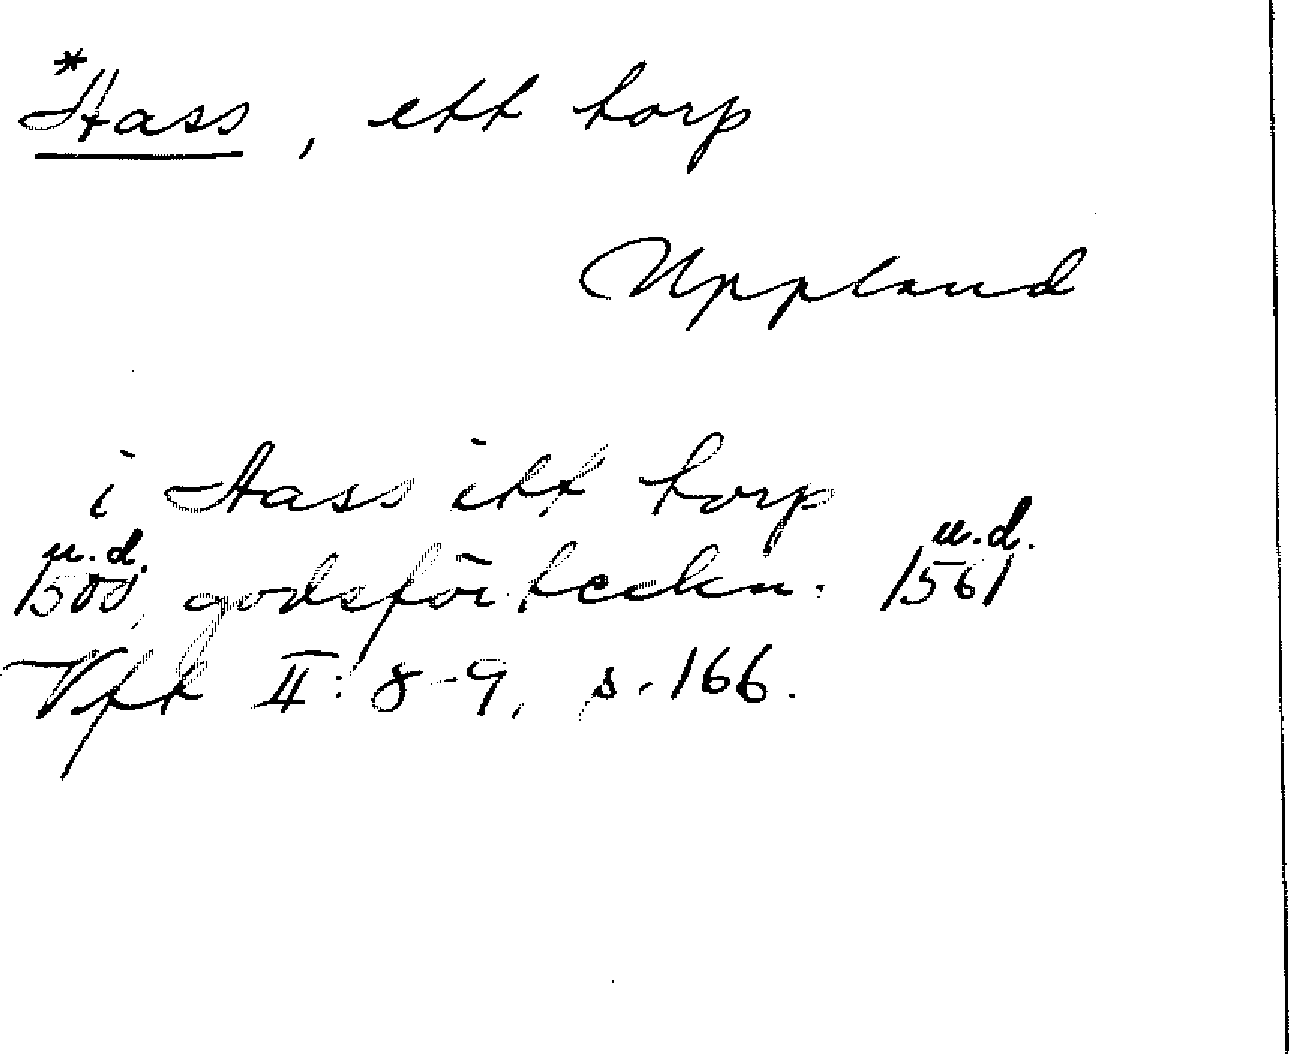 *Hass, ett torp
Uppland
i Hass itt torp
u.d. u.d.
1500, godsförteckn. 1561
Vft II: 8-9, s. 166.